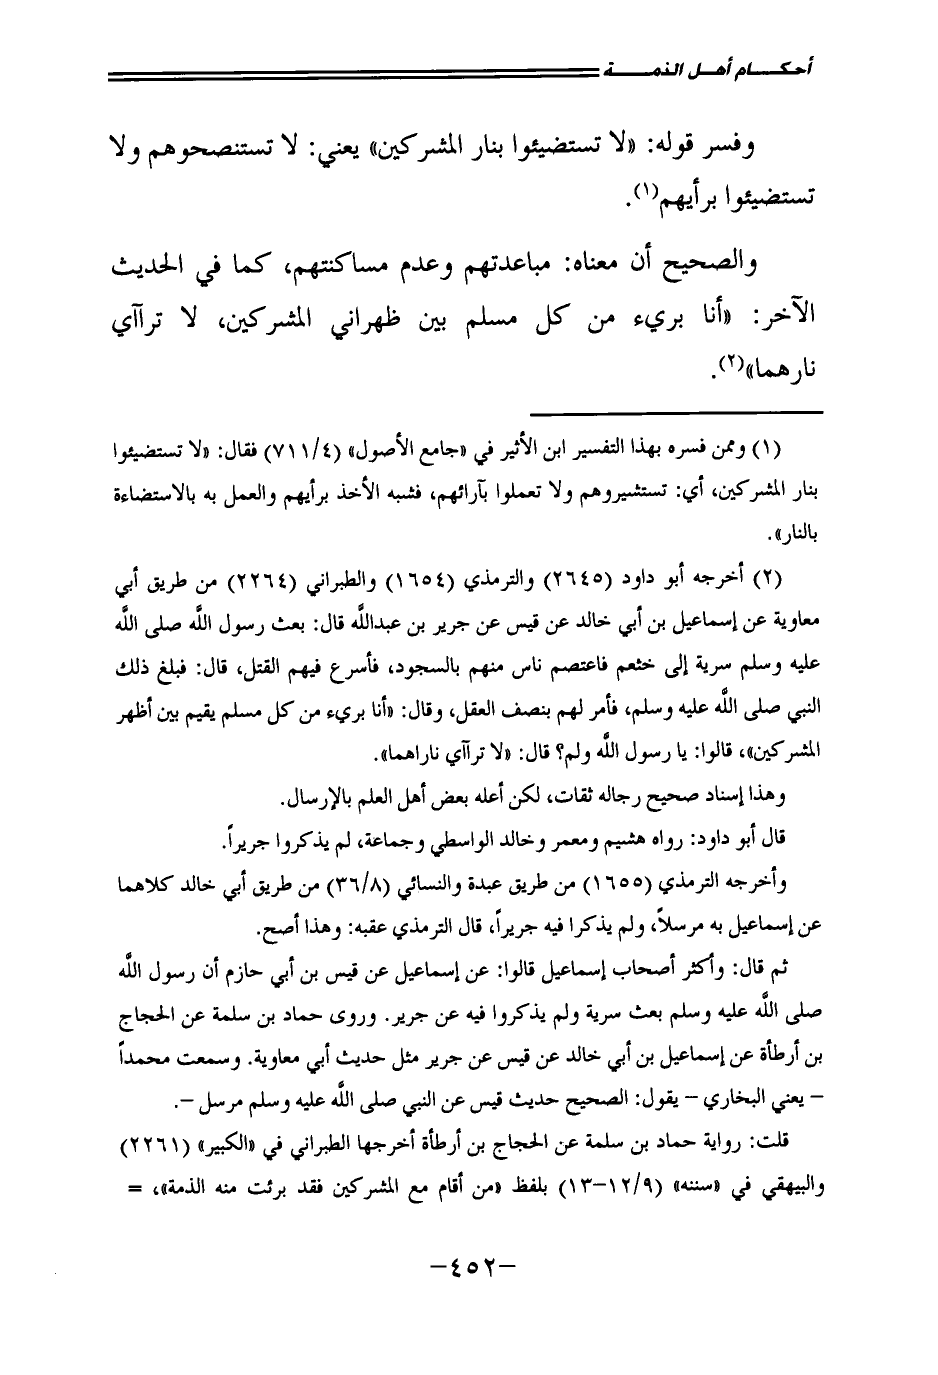 أحكـــام أهـل الذمـــة
وفسر قوله: «لا تستضيئوا بنار المشركين» يعني: لا تستنصحوهم ولا
تستضيئوا برأيهم(١).
والصحيح أن معناه: مباعدتهم وعدم مساكنتهم، كما في الحديث
الآخر: «أنا بريء من كل مسلم بين ظهراني المشركين، لا تراآي
نارهما»(٢).
(١) وممن فسره بهذا التفسير ابن الأثير في «جامع الأصول» (٧١١/٤) فقال: «لا تستضيئوا
بنار المشركين، أي: تستشيروهم ولا تعملوا بآرائهم، فشبه الأخذ برأيهم والعمل به بالاستضاءة
بالنار».
(٢) أخرجه أبو داود (٢٦٤٥) والترمذي (١٦٥٤) والطبراني (٢٢٦٤) من طريق أبي
معاوية عن إسماعيل بن أبي خالد عن قيس عن جرير بن عبدالله قال: بعث رسول الله صلى الله
عليه وسلم سرية إلى خثعم فاعتصم ناس منهم بالسجود، فأسرع فيهم القتل، قال: فبلغ ذلك
النبي صلى الله عليه وسلم، فأمر لهم بنصف العقل، وقال: «أنا بريء من كل مسلم يقيم بين أظهر
المشركين»، قالوا: يا رسول الله ولم؟ قال: «لا تراآي ناراهما».
وهذا إسناد صحيح رجاله ثقات، لكن أعله بعض أهل العلم بالإرسال.
قال أبو داود: رواه هشيم ومعمر وخالد الواسطي وجماعة، لم يذكروا جريراً.
وأخرجه الترمذي (١٦٥٥) من طريق عبدة والنسائي (٣٦/٨) من طريق أبي خالد كلاهما
عن إسماعيل به مرسلاً، ولم يذكرا فيه جريراً، قال الترمذي عقبه: وهذا أصح.
ثم قال: وأكثر أصحاب إسماعيل قالوا: عن إسماعيل عن قيس بن أبي حازم أن رسول الله
صلى الله عليه وسلم بعث سرية ولم يذكروا فيه عن جرير. وروى حماد بن سلمة عن الحجاج
بن أرطأة عن إسماعيل بن أبي خالد عن قيس عن جرير مثل حديث أبي معاوية. وسمعت محمداً
– يعني البخاري – يقول: الصحيح حديث قيس عن النبي صلى الله عليه وسلم مرسل –.
قلت: رواية حماد بن سلمة عن الحجاج بن أرطأة أخرجها الطبراني في «الكبير» (٢٢٦١)
والبيهقي في «سننه» (١٢/٩–١٣) بلفظ «من أقام مع المشركين فقد برئت منه الذمة»، =
–٤٥٢–